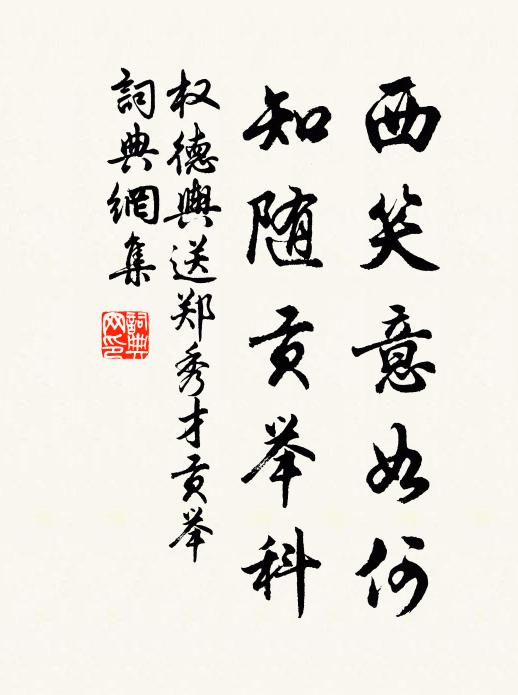 西笑意如何
知随贡举科
权德舆送郑秀才贡举
詞典網集
詞典網印